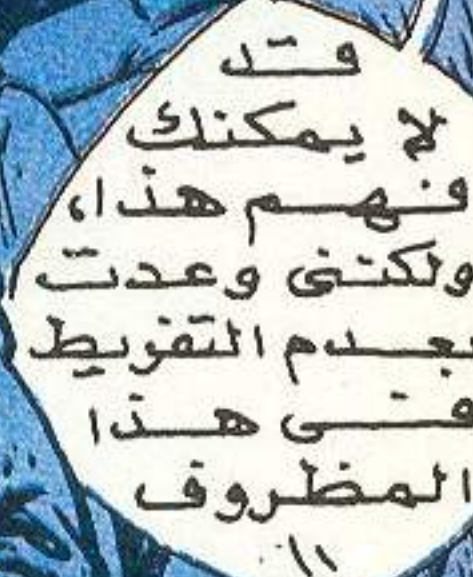 قد
لا يمكنك
فهم هذا،
ولكننى وعدت
بعدم التفريط
فى هذا
المظروف
!!